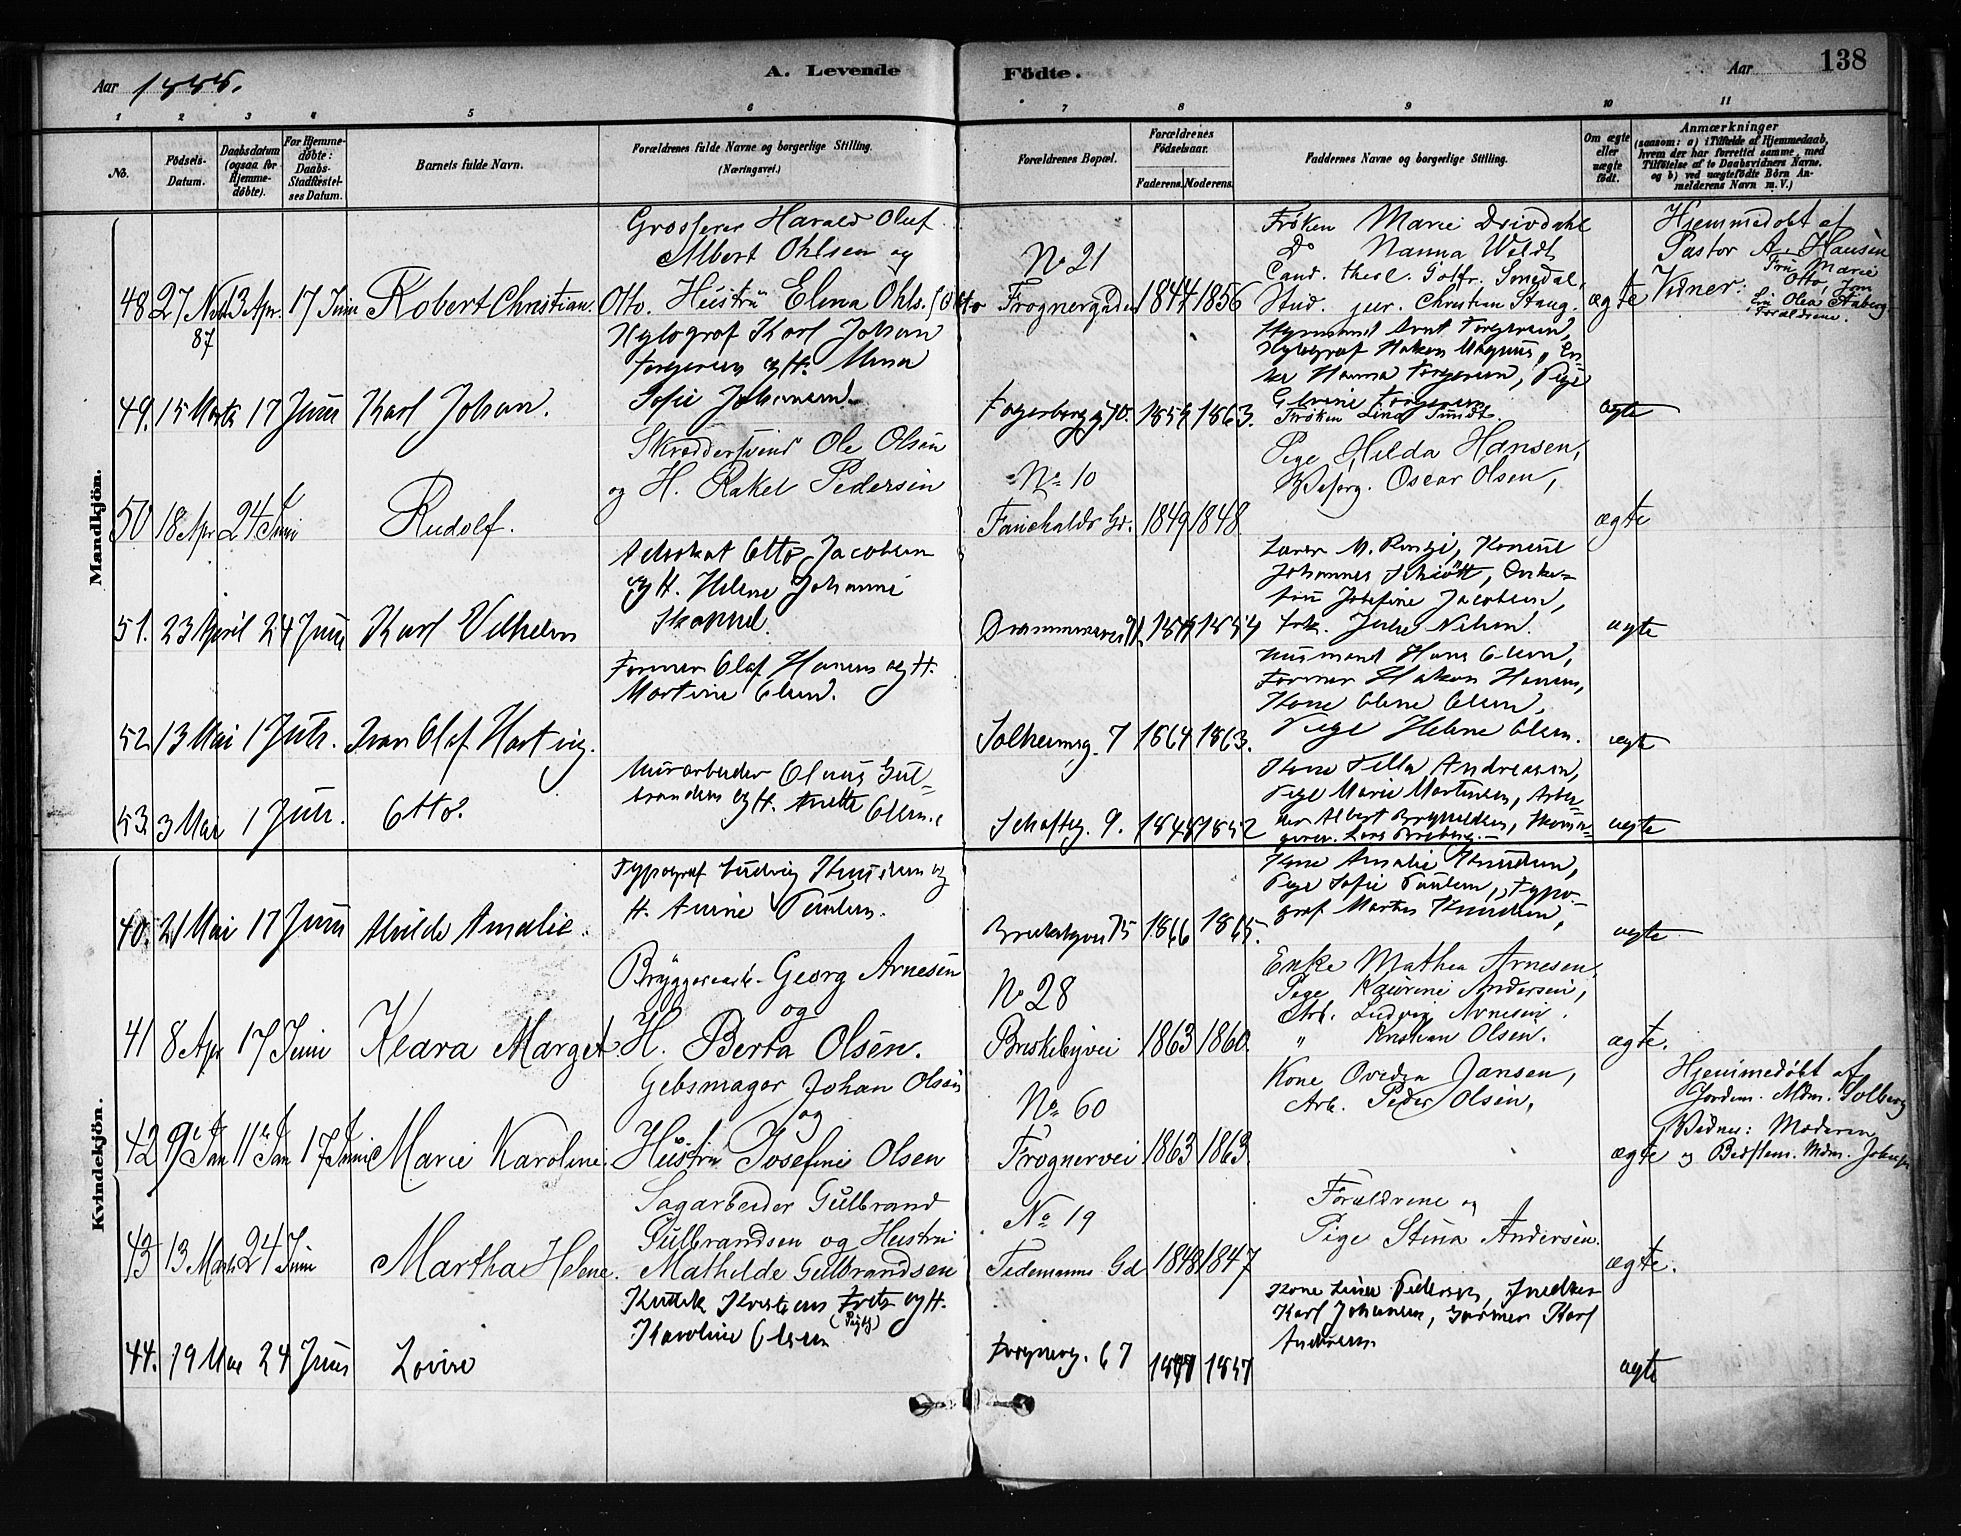 Aar 1888.
A. Levende Födte.
Aar
138
1 2 3 4 5 6 7 8 9 10 11
No.
Födsels-Datum.
Daabsdatum (ogsaa for Hjemme-döbte).
For Hjemme-döbte: Daabs-Stadfæstel-ses Datum.
Barnets fulde Navn.
Forældrenes fulde Navne og borgerlige Stilling. (Næringsvei.)
Forældrenes Bopæl.
Forældrenes Födselsaar.
Faderens. Moderens.
Faddernes Navne og borgerlige Stilling.
Om ægte eller uægte födt.
Anmærkninger
(saasom: a) i Tilfælde af Hjemmedaab, hvem der har forrettet samme, med Tilföielse af to Daabsvidners Navne, og b) ved uægtefödte Börn An-melderens Navn m. V.)
Mandkjön.
48 27 Nov 87 13 Apr. 17 Juni Robert Christian.
Grosserer Harald Oluf
Albert Ohlsen og
Hustru Elena Ohls. f. Otto
No 21
Frognergaden 1844 1856
Frøken Marie Drivdahl
Do Nanna Weldt
Cand. theol. Gotfr. Smedal,
Stud. jur. Christian Staug.
ægte
Hjemmedøbt af
Pastor A. Hansen
Vidner: Fru Marie
Otto,
Olea Aaberg
Forældrene.
49. 15 Marts 17 Juni Karl Johan.
Xylograf Karl Johan
Torgersen og H. Mina
Sofie Johansen.
Fagerborgg 40. 1859 1863.
Arnt Torgersen,
Xylograf Hakon Magnus, En-
ke Hanna Torgersen, Pige
Torgersen
Frøken Lina Smidt.
ægte
50 18 Apr 24 Juni Rudolf.
Skræddersvend Ole Olsen
og H. Rakel Pedersen
No 10
Fauchalds Gd. 1849 1848
Pige Hilda Hansen,
Oscar Olsen,
ægte
51. 23 April 24 Juni Karl Vilhelm
Advokat Otto Jacobsen
og H. Helene Johanne
Drammensvei 1854
Konsul
Johannes Schiött, Enke-
fru Josefine Jacobsen,
Frk. Julie Nilsen.
ægte
52 13 Mai 1 Juli. Ivar Olaf Hartvig.
Former Olaf Hansen og H.
Martine Olsen.
Solheimsg. 7 1864 1863.
Husmand Hans Olsen,
Former Hakon Hansen,
Kone Olene Olsen,
Pige Helene Olsen.
ægte
53. 3 Mai 1 Juli. Otto.
Murarbeider Olaus Gul-
brandsen og H. Anette Olsen.
Schafteg. 9. 1848 1852
Kone Andreasen,
Pige Marie Martinsen, Arbei-
der Albert Brynildsen,
ægte
Kvindekjön.
40. 21 Mai 17 Juni Alvilde Amalie.
Typograf Ludvig Knudsen og
H. Anine Paulsen.
Briskebyvei 75 1866 1865.
Kone Amalie Knudsen,
Pige Sofie Paulsen, Typo-
graf Martin Knudsen,
ægte
41 8 Apr 17 Juni Klara Marget
Bryggeriarb. Georg Arnesen
og
H. Berta Olsen.
No 28
Briskebyvei 1863 1860.
Enke Mathea Arnesen.
Pige Kaurine Andersen,
Arb. Ludvig Arnesen.
" Kristian Olsen.
ægte.
42 9 Jan 11 Jan 17 Juni Marie Karoline.
Gebsmager Johan Olsen
og
Hustru Josefine Olsen
No 60
Frognervei 1863 1863.
Kone Ovedia Jansen,
Arb. Peder Olsen,
ægte
Hjemmedøbt af
Jordem. Mdm. Solberg
Vidner: Moderen
og Bedstem. Mdm.
43 13 Marts 24 Juni Martha Helene.
Sagarbeider Gulbrand
Gulbrandsen og Hustru
Mathilde Gulbrandsen
No 19
Tidemanns Gd 1848 1847
Forældrene og
Pige Stina Andersen.
ægte.
44. 19 Mai 24 Juni Lovise
Kusk Kristian og H.
Karoline Olsen
Frognerv. 67 1857
Kone Line Pedersen, Snedker
Karl Johansen, Karl
Andersen
ægte